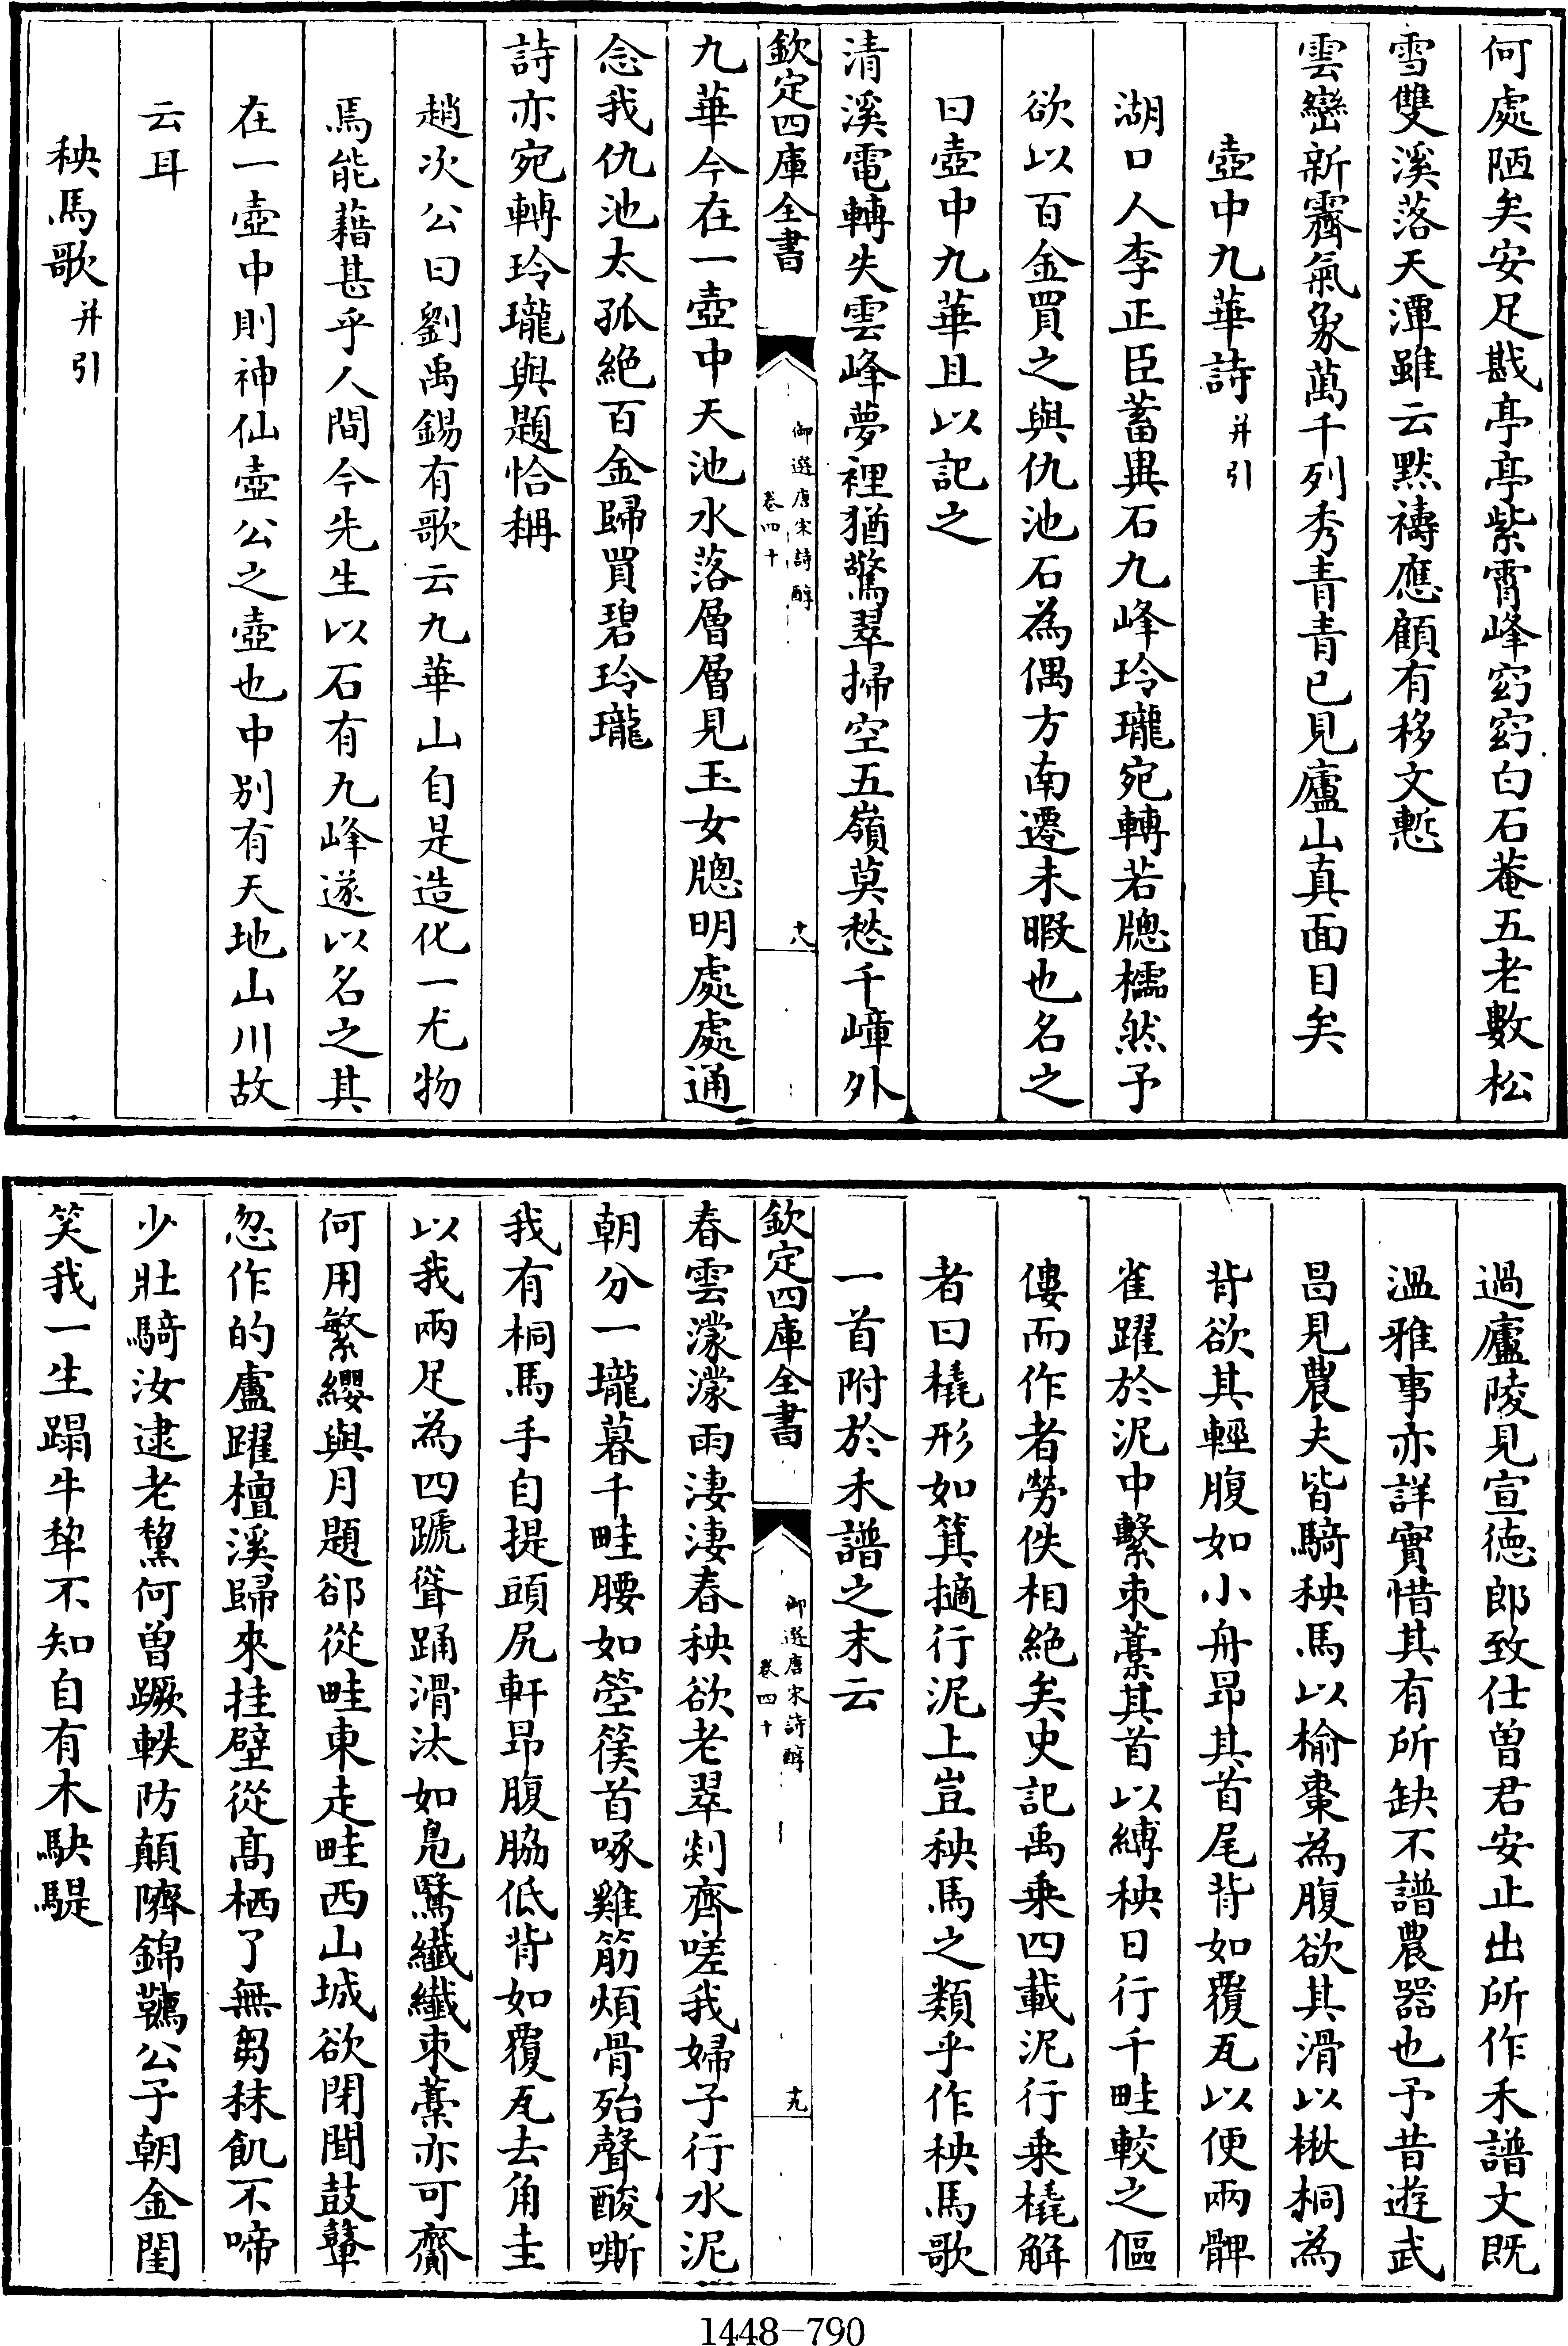 何處陋矣安足戡亭亭紫霄峰窈窈白石菴五老數松
雪雙溪落天潭雖云默禱應顧有移文慙
雲巒新霽氣象萬千列秀青青已見廬山真面目矣
壺中九華詩并引
湖口人李正臣蓄異石九峰玲瓏宛轉若牕櫺然予
欲以百金買之與仇池石為偶方南遷未暇也名之
曰壺中九華且以記之
清溪電轉失雲峰夢裡猶驚翠掃空五嶺莫愁千嶂外
欽定四庫全書
御選唐宋詩醇
卷四十
十八
九華今在一壺中天池水落層層見玉女牕明處處通
念我仇池太孤絶百金歸買碧玲瓏
詩亦宛轉玲瓏與題恰稱
趙次公曰劉禹錫有歌云九華山自是造化一尤物
焉能藉甚乎人間今先生以石有九峰遂以名之其
在一壺中則神仙壺公之壺也中别有天地山川故
云耳
秧馬歌并引
過廬陵見宣徳郎致仕曽君安止出所作禾譜文既
溫雅事亦詳實惜其有所缺不譜農器也予昔遊武
昌見農夫皆騎秧馬以榆棗為腹欲其滑以楸桐為
背欲其輕腹如小舟昂其首尾背如覆瓦以便兩髀
雀躍於泥中繫束藁其首以縛秧日行千畦較之傴
僂而作者勞佚相絶矣史記禹乗四載泥行乗橇解
者曰橇形如箕擿行泥上豈秧馬之類乎作秧馬歌
一首附於禾譜之末云
欽定四庫全書
御選唐宋詩醇
卷四十
十九
春雲濛濛雨淒淒春秧欲老翠剡齊嗟我婦子行水泥
朝分一壠暮千畦腰如箜篌首啄雞筋煩骨殆聲酸嘶
我有桐馬手自提頭尻軒昂腹脇低背如覆瓦去角圭
以我兩足為四蹏聳踊滑汰如鳬鷖纖纖束藁亦可齎
何用繁纓與月題郤從畦東走畦西山城欲閉聞鼓鼙
忽作的盧躍檀溪歸來挂壁從髙栖了無芻秣飢不啼
少壯騎汝逮老黧何曽蹶軼防顛隮錦韉公子朝金閨
笑我一生蹋牛犂不知自有木駃騠
1448-790